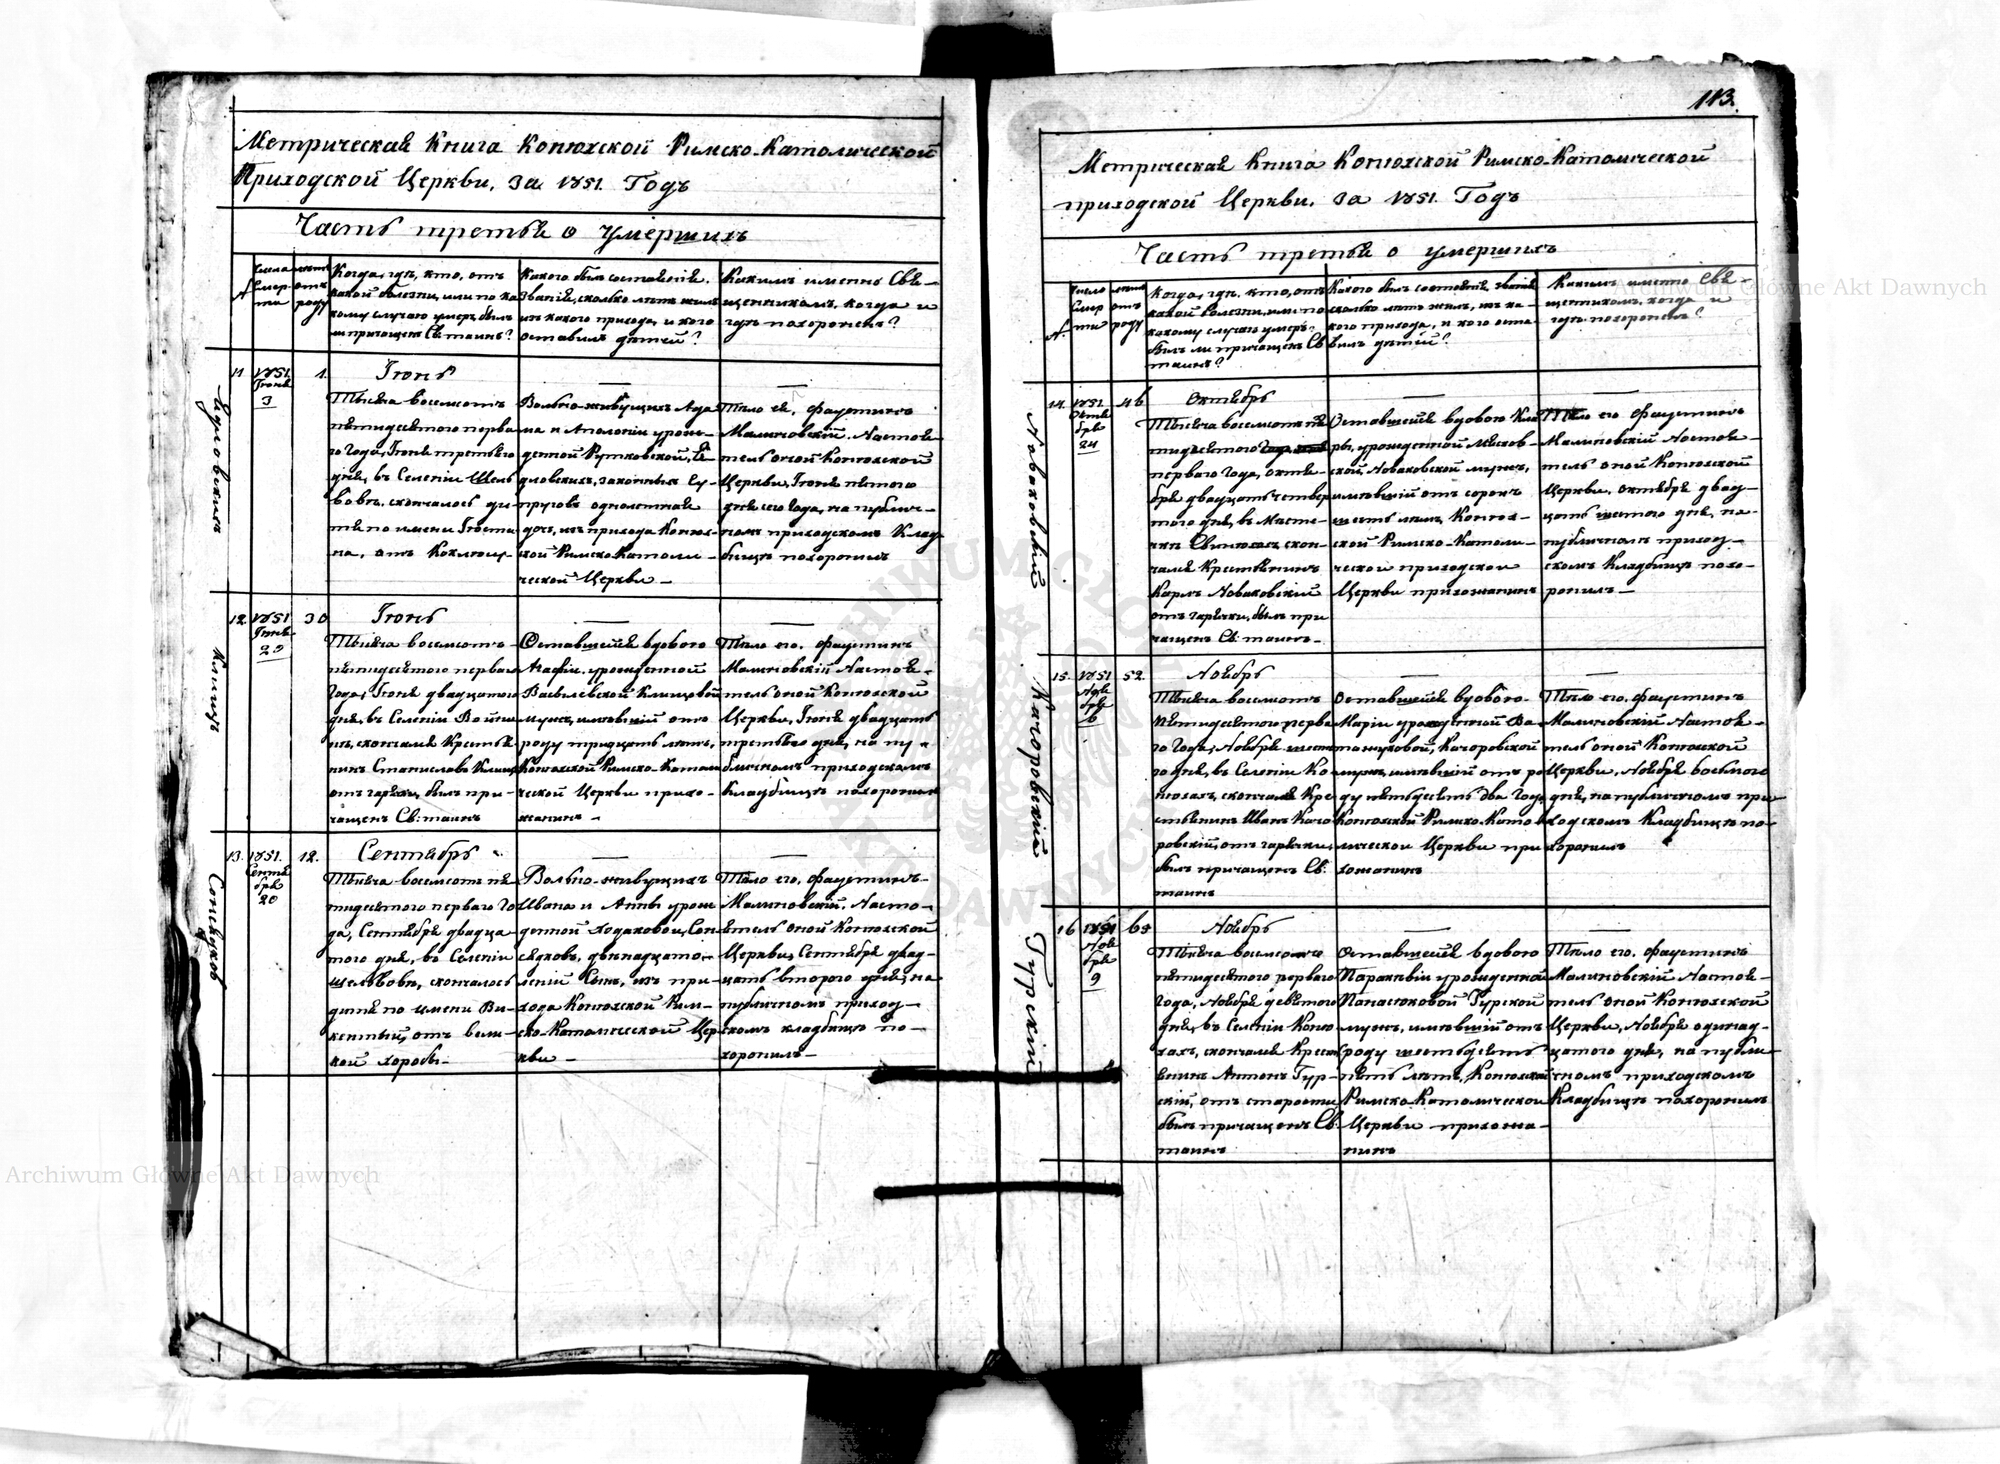 113.
Метрическая Книга Конюхской Римско-Католической
Приходской Церкви, За 1851. Годъ
Часть третья о умершихъ
№
Числа смерти
лѣта отъ роду
Когда, гдѣ, кто, отъ
какой болезни, или по ка
кому случаю умеръ, былъ
ли причащенъ Св. таинъ?
Какого былъ состоянія,
званія, сколько лѣтъ жилъ
изъ какого прихода, и кого
оставилъ дѣтей?
Какимъ именно Свя-
щенникомъ, когда и
гдѣ похороненъ?
11
1851.
Іюня
3
1.
Іюнь
Тысяча восемсотъ
пятидесятого перва
го Года, Іюня третьего
дня, въ Селеніи Шель
вовѣ, скончалось ди-
тя по имени Іюсти
на, отъ Коклюшу-
Вольно-живущихъ Ада
ма и Аполоніи урож-
денной Рутковской,
законныхъ Су-
пруговъ однолетняя
дочь, изъ прихода Конюх-
ской Римско-Католи-
ческой Церкви -
Тѣло ея, Фаустинъ
Малиновскій, Настоя
тель оной Конюхской
Церкви, Іюня пятого
дня сего Года, на публич-
номъ приходскомъ Клад
бищѣ похоронилъ
12.
1851
Іюня
20
30
Клишъ
Іюнь
Тысяча восемсотъ
пятидесятого первого
Года, Іюня двадцатого
дня, въ Селеніи Войни
нѣ, скончался Крестья
нинъ Станиславъ Клишъ
отъ гарячки, былъ при-
чащенъ Св: таинъ
Оставшейся вдовою
Агафіи, урожденной
Василевской Клишовой
мужъ, имѣвшій отъ
роду тридцать лѣтъ,
Конюхской Римско-Католи
ческой Церкви прихо-
жанинъ -
Тѣло его, Фаустинъ
Малиновскій Настоя-
тель оной Конюхской
Церкви, Іюня двадцать
третьего дня, на пу-
бличномъ приходскомъ
Кладбищѣ похоронилъ
13.
1851.
Сентя
бря
20
12.
Сентябрь
Тысяча восемсотъ пя
тидесятого первого Го
да, Сентября двадца
того дня, въ Селеніи
Шельвовѣ, скончалось
дитя по имени Ви-
кентый, отъ вели-
кой хоробы-
Вольно-живущихъ
Ивана и Анны урож
денной Ходаковой,
двѣнадцато-
лѣтній Сынъ, изъ при-
хода Конюхской Рим-
ско-Католической Цер
кви -
Тѣло его, Фаустинъ-
Малиновскій, Насто-
ятель оной Конюхской
Церкви, Сентября двад-
цать второго дня, на
публичномъ приход-
скомъ кладбищѣ по-
хоронилъ -
Метрическая Книга Конюхской Римско-Католической
приходской Церкви, За 1851. Годъ
Часть третья о умершихъ
№.
Число Смерти
лѣта отъ роду
Когда, гдѣ, кто, отъ
какой болезни, или по
какому случаю умеръ?
былъ ли причащенъ Св
таинъ?
Какого былъ состоянія, званія
сколько лѣтъ жилъ, изъ ка-
кого прихода, и кого оста-
вилъ дѣтей?
Какимъ именно Свя-
щенникомъ, когда и
гдѣ похороненъ?
14.
1851.
Октя
бря
24
46
Новаковскій
Октябрь
Тысяча восемсотъ пя
тидесятого
первого Года, октя-
бря двадцать четвер
того дня, въ Месте-
чкѣ Свинюхахъ скон-
чался Крестьянинъ
Карлъ Новаковскій
отъ гарячки, былъ при
чащенъ Св: таинъ-
Оставшейся вдовою Кла
ры, урожденной
Новаковской мужъ,
имѣвшій отъ сорокъ
шесть лѣтъ, Конюх-
ской Римско-Католи-
ческой приходской
Церкви прихожанинъ
Тѣло его, Фаустинъ
Малиновскій Настоя-
тель оной Конюхской
Церкви, октября двад-
цать шестого дня, на-
публичномъ приход-
скомъ Кладбищѣ похо-
ронилъ -
15.
1851
Ноя
бря
6
52.
Качоровскій
Ноябрь
Тысяча восемсотъ
пятидесятого перва
го Года, Ноября шест
го дня, въ Селеніи Ко
нюхахъ, скончался Кре
стьянинъ Иванъ Качо
ровскій, отъ гарячки,
былъ причащенъ Св:
таинъ
Оставшейся вдовою-
Маріи урожденной
Качоровской
мужъ, имѣвшій отъ ро
ду пятьдесятъ два Года
Конюхской Римско-Като
лической Церкви при
хожанинъ
Тѣло его, Фаустинъ
Малиновскій Настоя-
тель оной Конюхской
Церкви, Ноября восьмого
дня, на публичномъ при
ходскомъ Кладбищѣ по-
хоронилъ
16
1851
Ноя
бря
9
65
Гурскій
Ноябрь
Тысяча восемсотъ
пятидесятого первого
Года, Ноября девятого
дня, въ Селеніи Коню
хахъ, скончался Крест
янинъ Антонъ Гур-
скій, отъ старости
былъ причащенъ Св:
таинъ
Оставшейся вдовою
Параскѣвіи урожденной
Панасюковой Гурской
мужъ, имѣвшій отъ
роду шестьдесятъ
пять лѣтъ, Конюхской
Римско-Католической
Церкви прихожа-
нинъ
Тѣло его, Фаустинъ
Малиновскій Настоя-
тель оной Конюхской
Церкви, Ноября одинад-
цатого дня, на публи
чномъ приходскомъ
Кладбищѣ похоронилъ
Archiwum Główne Akt Dawnych
Archiwum Główne Akt Dawnych
ARCHIWUM GŁÓWNE AKT DAWNYCH